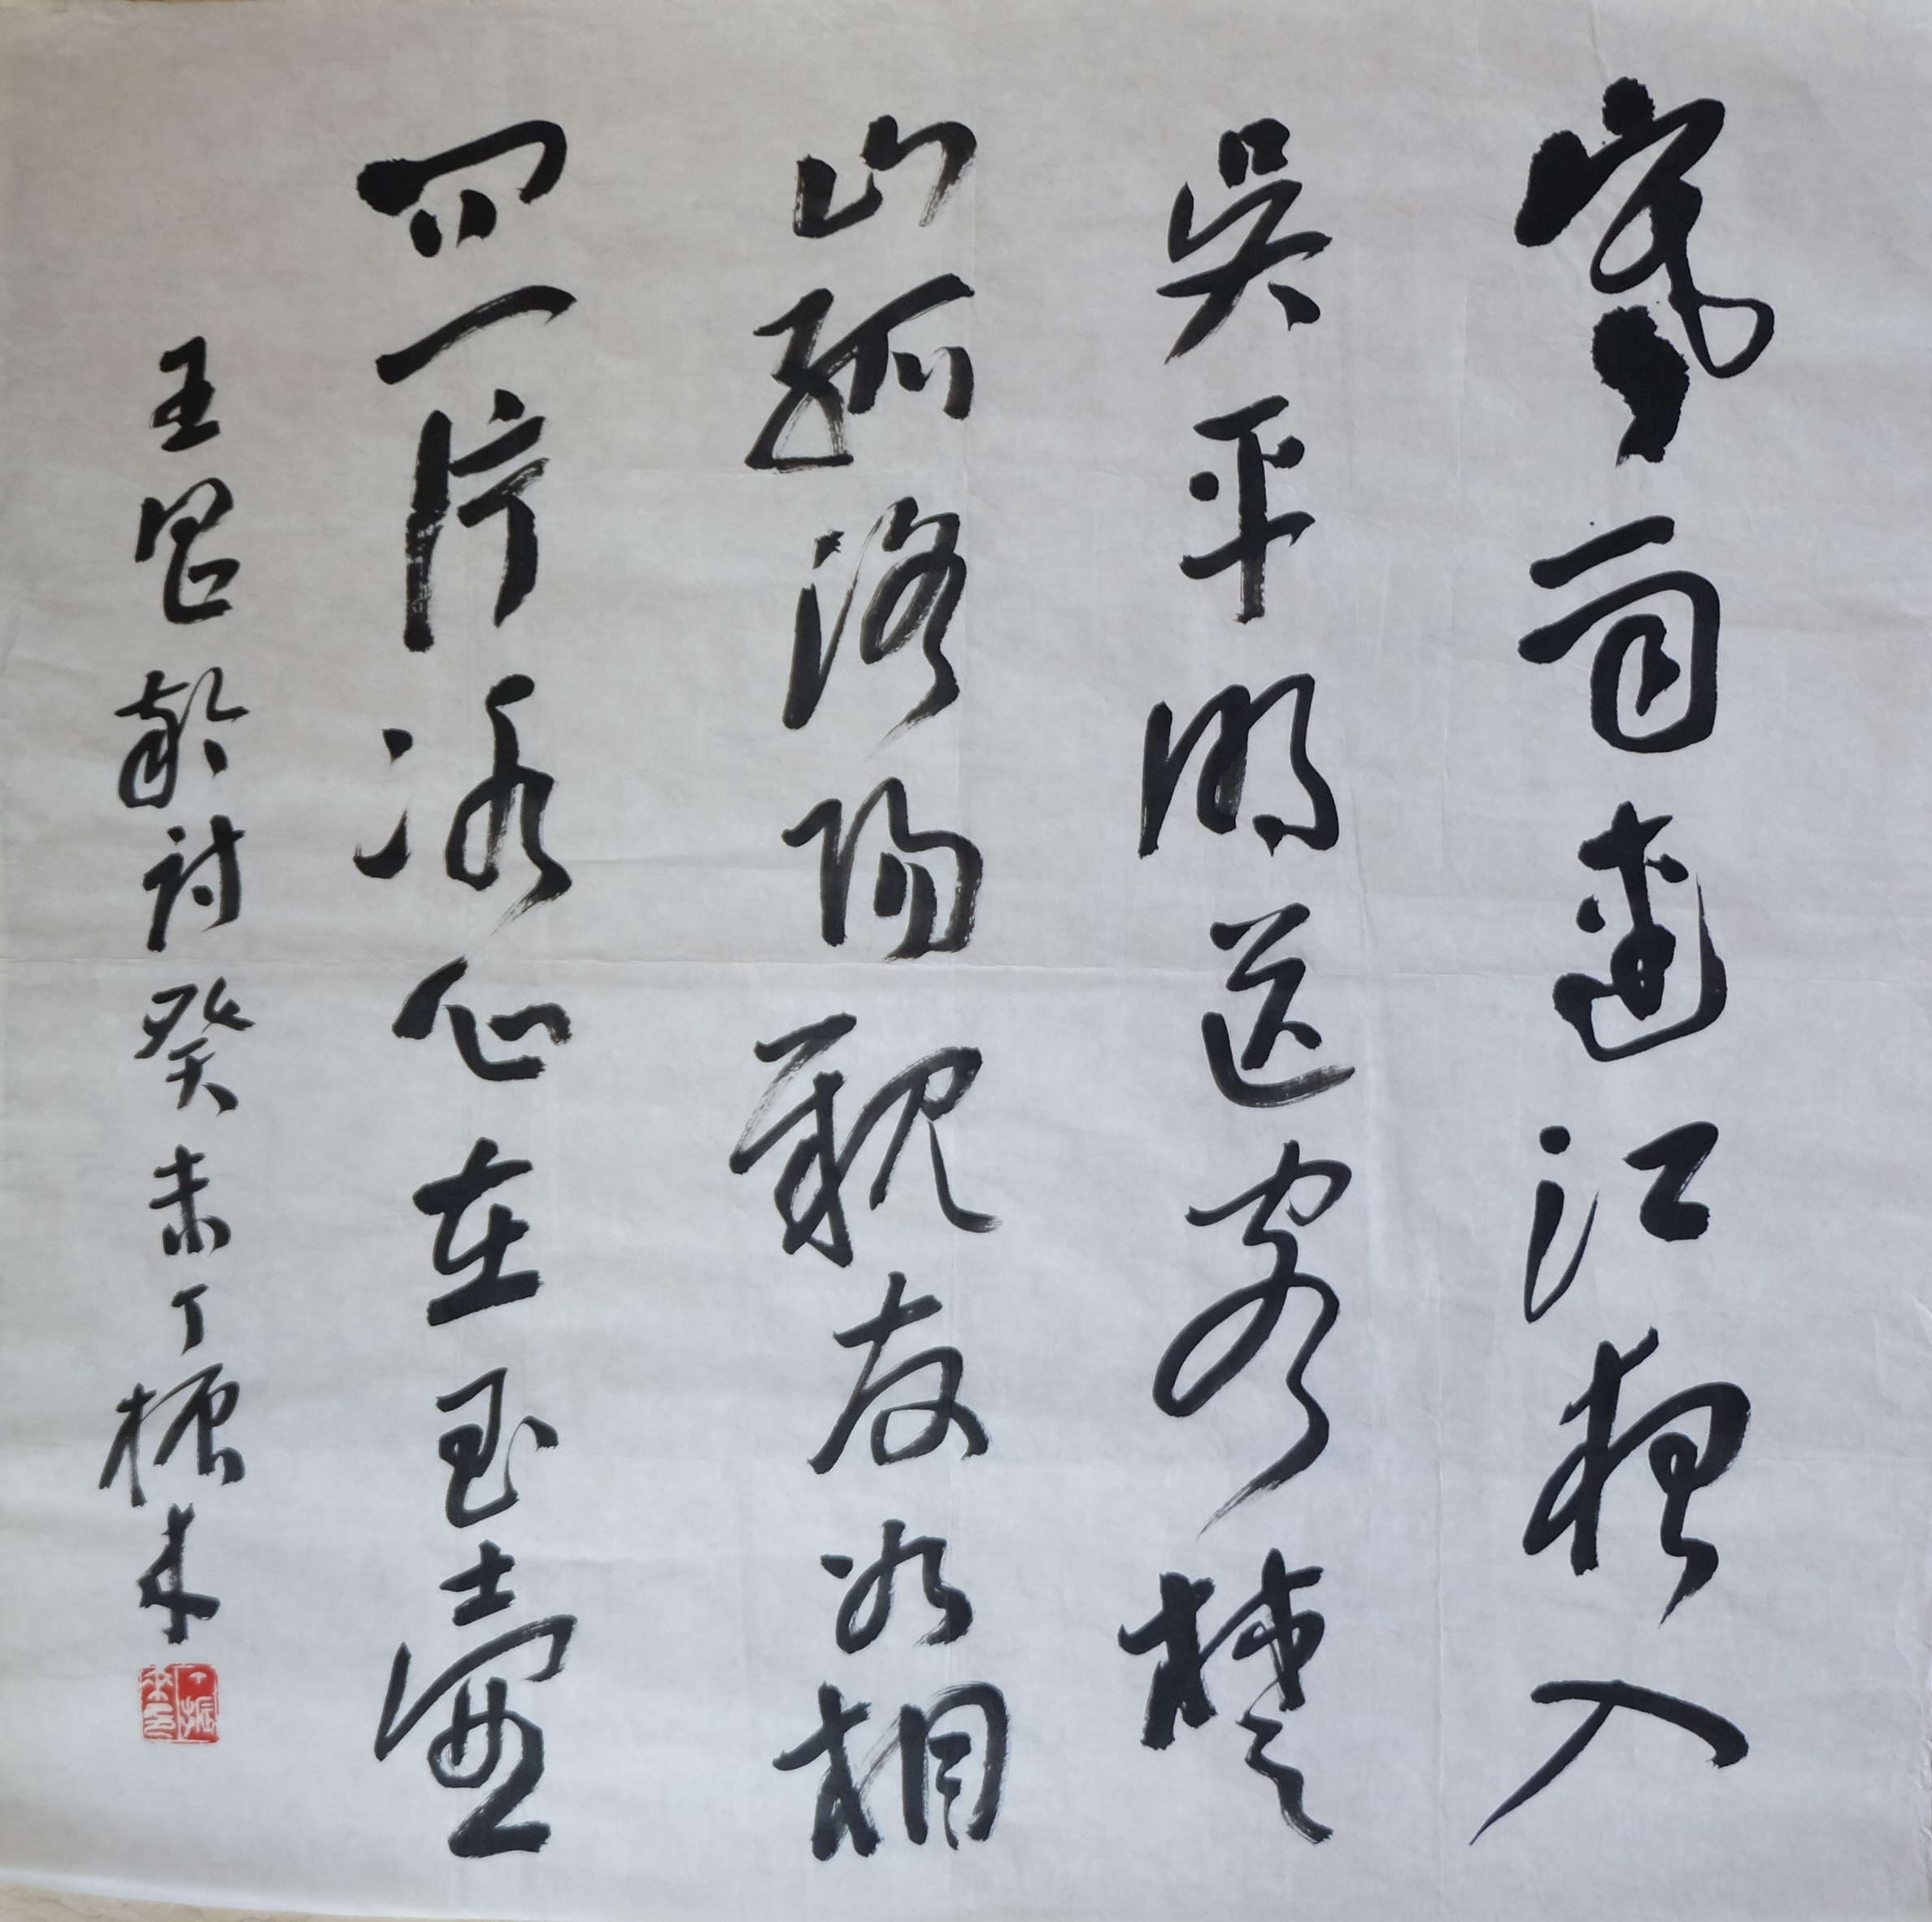 寒雨連江夜入
吳平明送客楚
山孤洛陽親友如相
問一片冰心在玉壺
王昌齡詩癸未丁振来
丁振来印